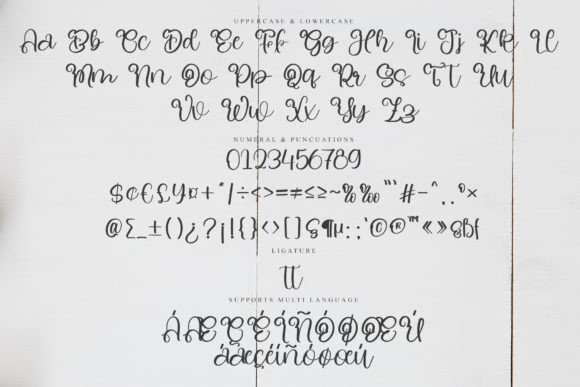 UPPERCASE & LOWERCASE
Aa Bb Cc Dd Ee Ff Gg Hh Ii Jj Kk Ll
Mm Nn Oo Pp Qq Rr Ss Tt Uu
Vv Ww Xx Yy Zz
NUMERAL & PUNCUATIONS
0123456789
$¢€£¥¤+*/÷<>=≠≤≥~%‰"'#-^,.ºª×
@Σ_±()¿?¡!{}‹›[]§¶µ:;'©®™«»§ßf
LIGATURE
tt
SUPPORTS MULTI LANGUAGE
ÁÆÇÉÍÑÓØŒÚ
áæçéíñóøœú